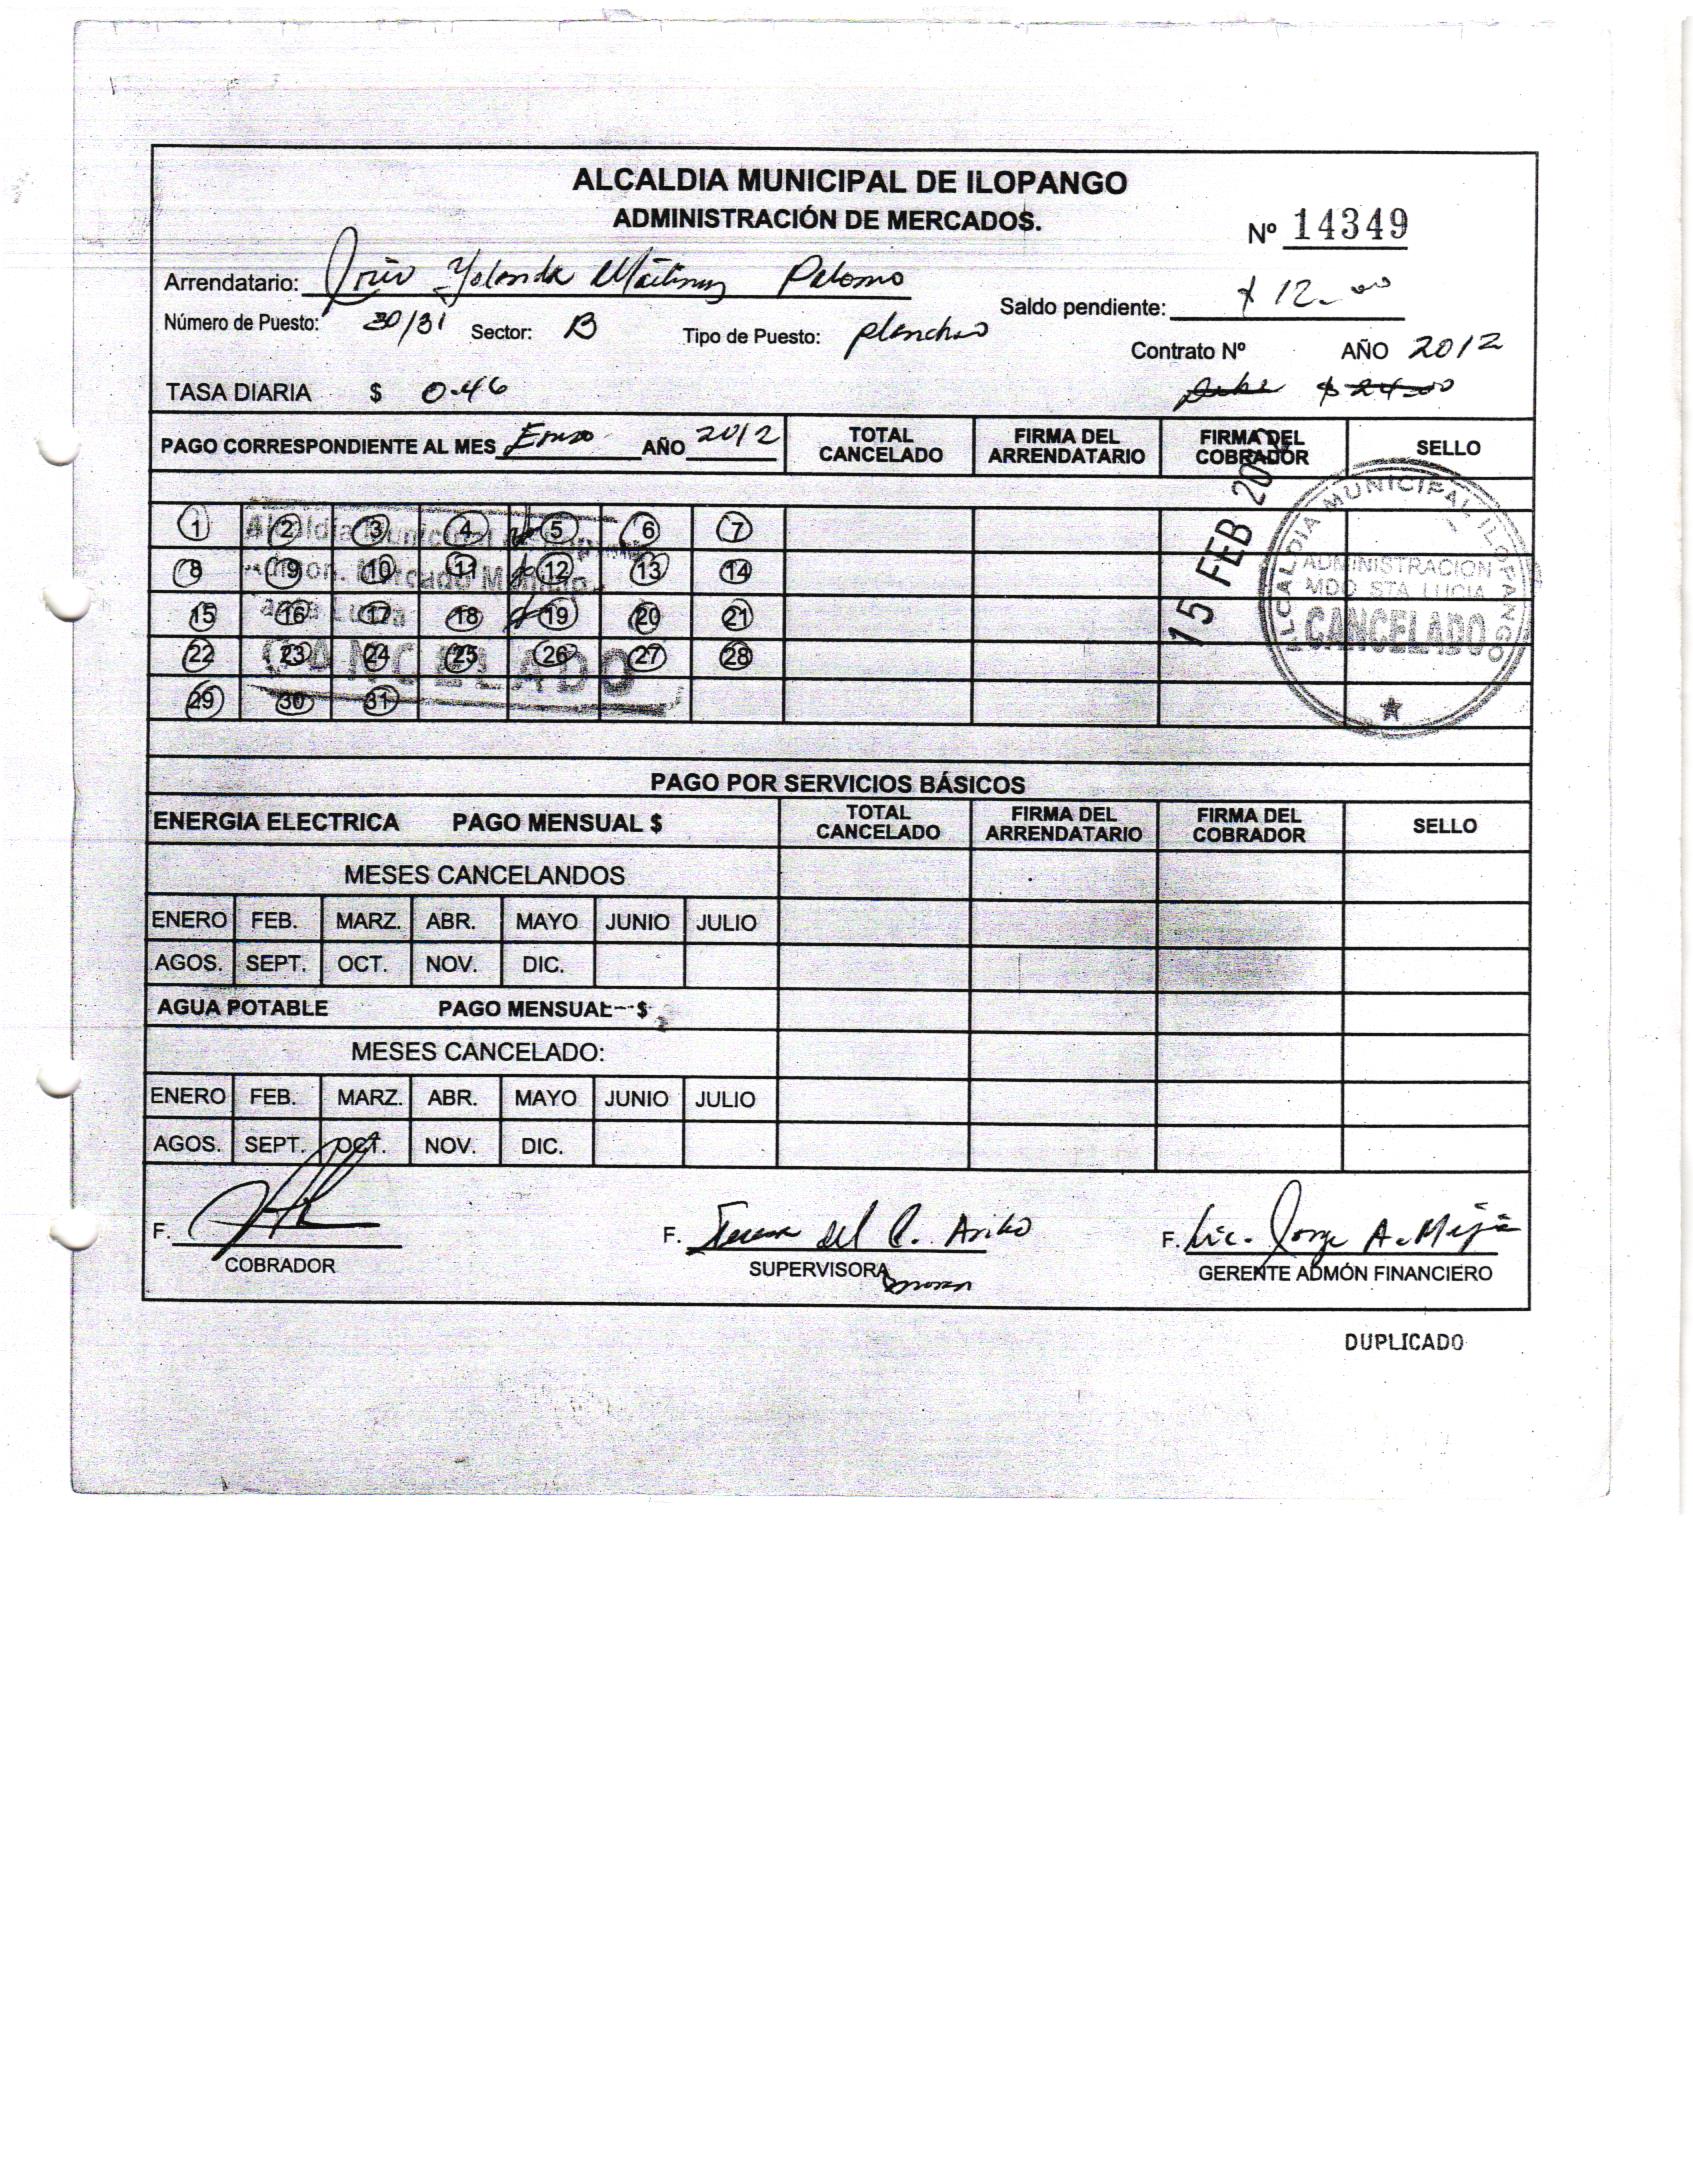 ALCALDIA MUNICIPAL DE ILOPANGO
ADMINISTRACIÓN DE MERCADOS.
Nº 14349
Arrendatario: Yolanda Martinez Palomo
Saldo pendiente: $ 12.00
Número de Puesto: 30/31 Sector: B Tipo de Puesto: plancha
Contrato Nº AÑO 2012
TASA DIARIA $ 0.46
debe $ 24.00
PAGO CORRESPONDIENTE AL MES Enero AÑO 2012 TOTAL CANCELADO FIRMA DEL ARRENDATARIO FIRMA DEL COBRADOR SELLO
1 2 3 4 5 6 7
8 9 10 11 12 13 14
15 16 17 18 19 20 21
22 23 24 25 26 27 28
29 30 31
Alcaldia Municipal
Admon. Mercado
Santa Lucia
CANCELADO
15 FEB
ALCALDIA MUNICIPAL ILOPANGO
ADMINISTRACION
MDO. STA. LUCIA
CANCELADO
PAGO POR SERVICIOS BÁSICOS
ENERGIA ELECTRICA PAGO MENSUAL $ TOTAL CANCELADO FIRMA DEL ARRENDATARIO FIRMA DEL COBRADOR SELLO
MESES CANCELANDOS
ENERO FEB. MARZ. ABR. MAYO JUNIO JULIO
AGOS. SEPT. OCT. NOV. DIC.
AGUA POTABLE PAGO MENSUAL $
MESES CANCELADO:
ENERO FEB. MARZ. ABR. MAYO JUNIO JULIO
AGOS. SEPT. OCT. NOV. DIC.
F. F. Teresa del C. F. Lic. Jorge A. Mejía
COBRADOR SUPERVISORA GERENTE ADMÓN FINANCIERO
DUPLICADO